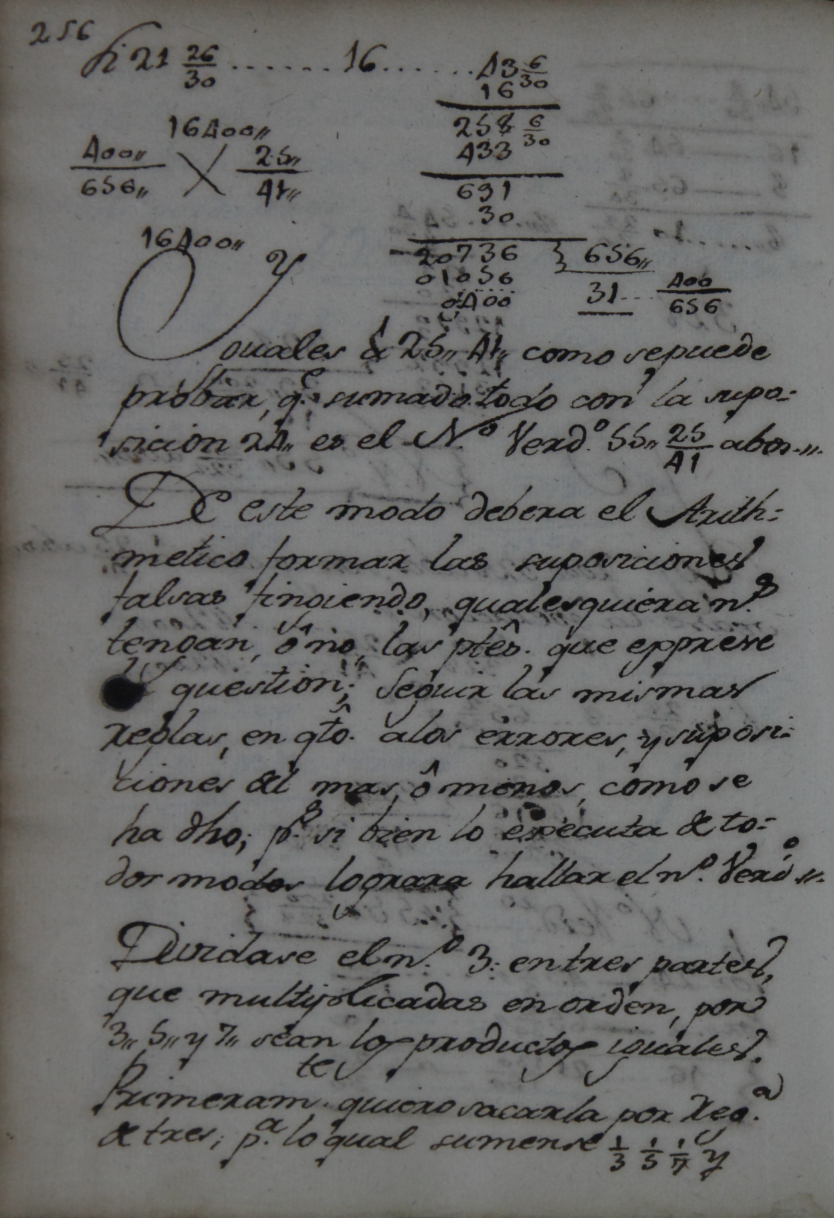 256
Si 21 26/30 ....... 16 ....... 43 6/30
16
16400,,
258 6/30
433
400,,/656,, X 25,,/41,,
691
30
16400,,
20736 } 656,,
01056 31.. 400/656
0400
Y
guales â 25,, 41,, como se puede
probar, q.e sumado todo con la supo=
sicion 24,, es el N.o Verd.o 55,, 25/41 abos.,,
De este modo debera el Arith=
metico formar las suposiciones
falsas fingiendo, qualesquiera n.s
tengan, ô no, las ptês. que epprese
question; Seguir las mismas
reglas, en qtô. alos errores, y suposi=
ciones del mas, ô menos, como se
ha dho; p.s si bien lo executa de to=
dos modos lograra hallar el n.o Verd.o,,.
Dividase el n.o 3: en tres partes,
que multiplicadas en orden, por
3,, 5,, y 7,, sean los productos iguales.
Primeram.te quiero sacarla por Reg.a
de tres; p.a lo qual sumense 1/3 1/5 1/7 y